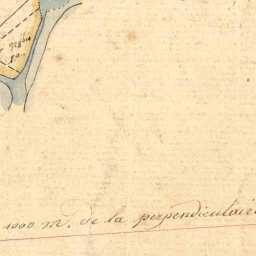 1000 m. de la perpendiculaire